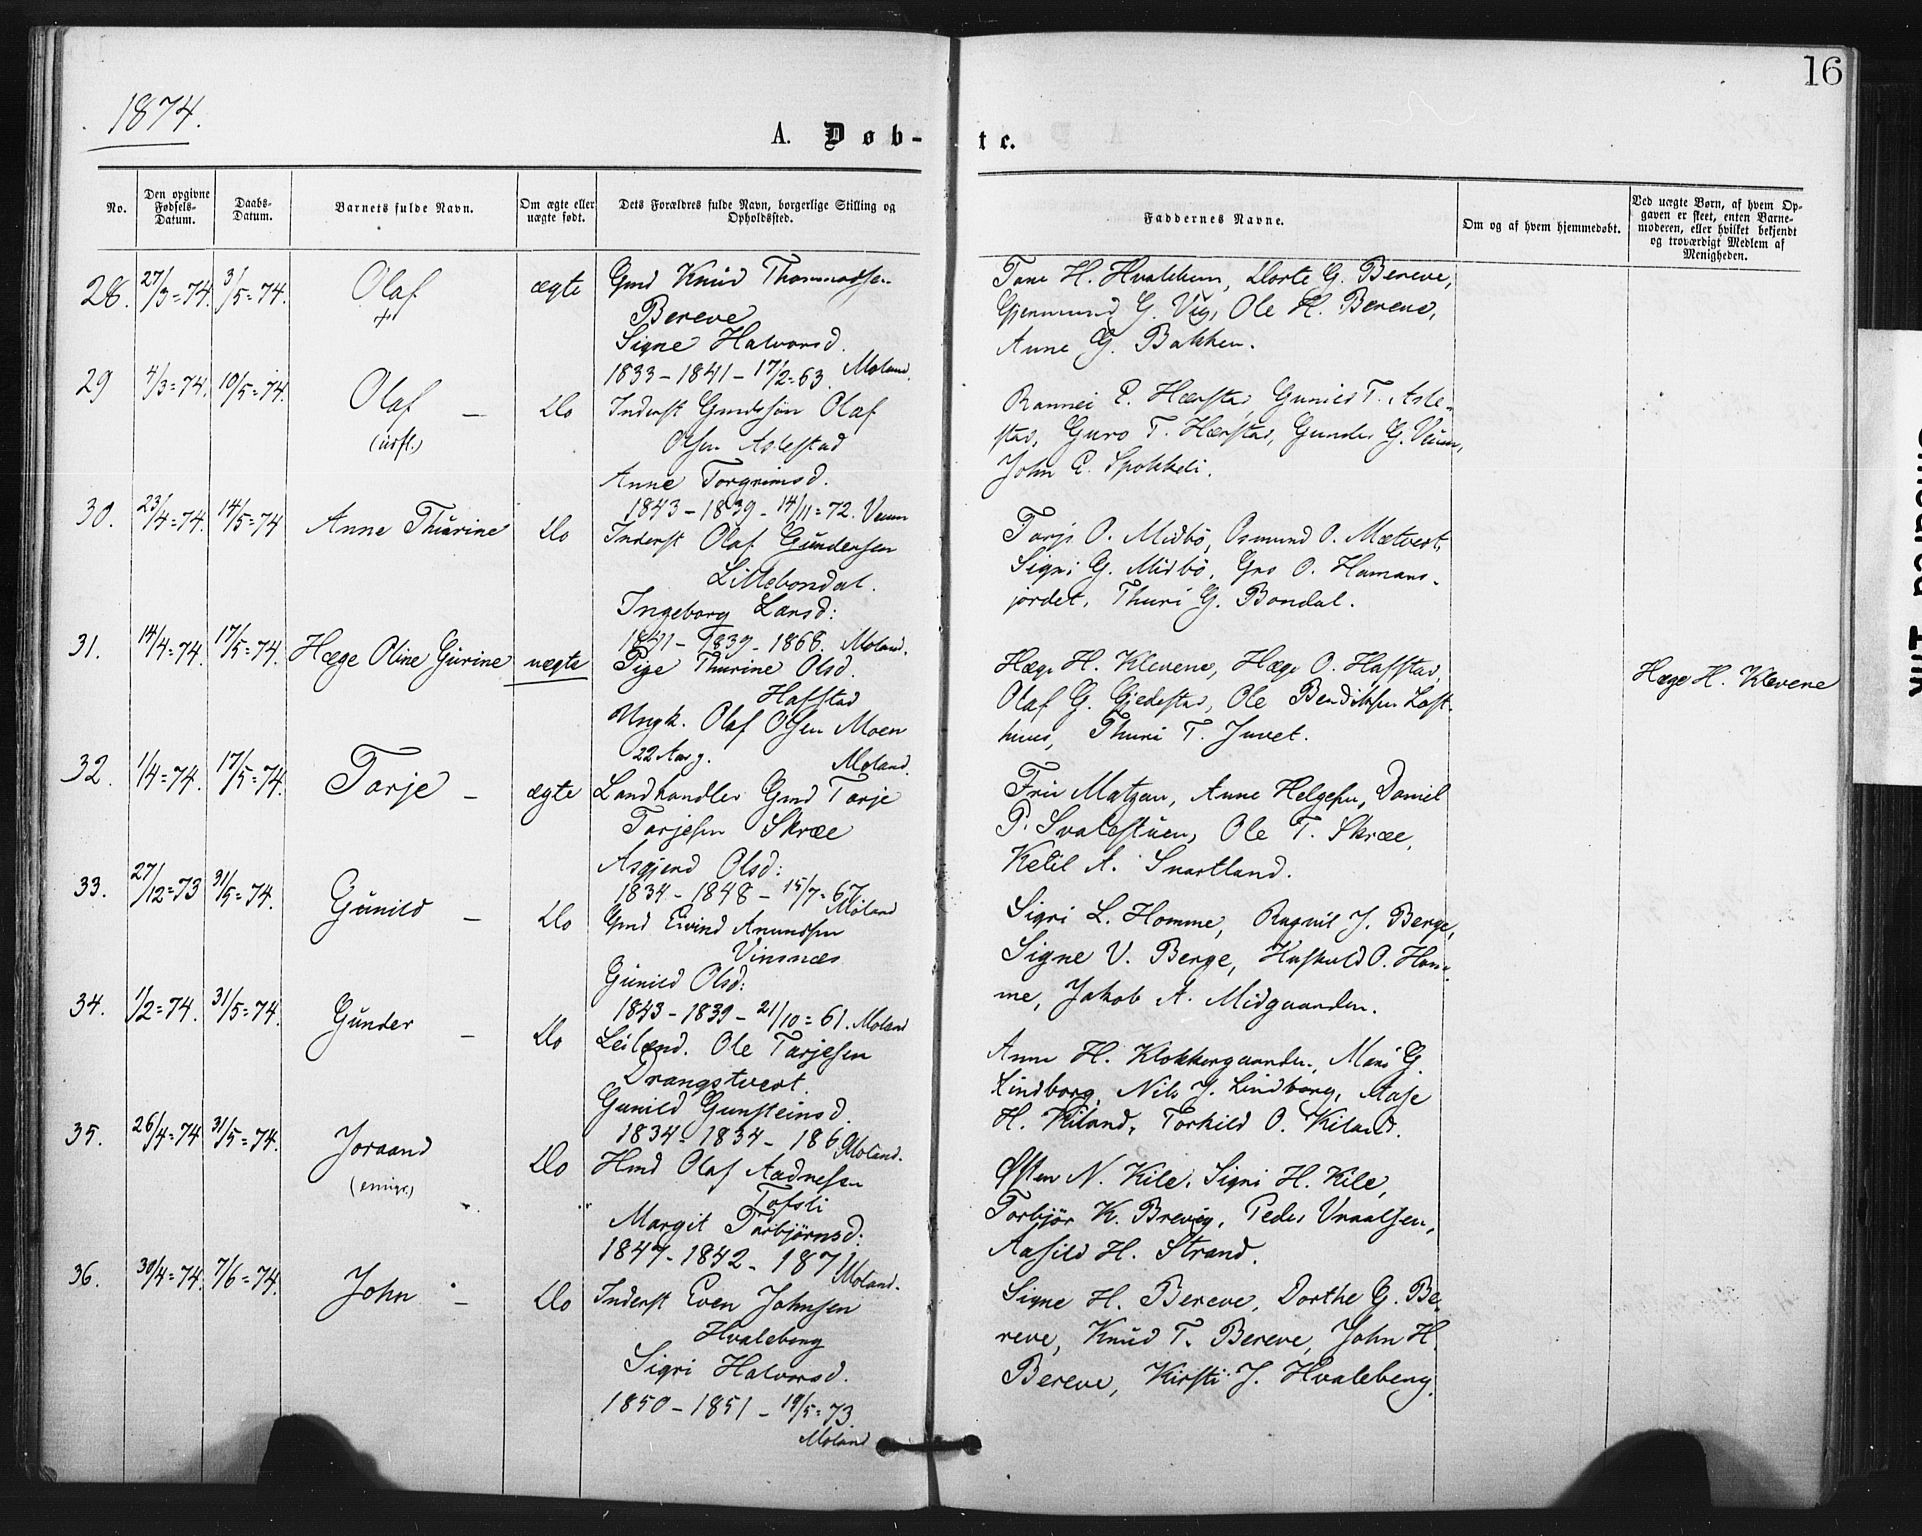 1874.
16
A. Døb-
te.
No.
Den opgivne Fødsels-Datum.
Daabs-Datum.
Barnets fulde Navn.
Om ægte eller uægte født.
Dets Forældres fulde Navn, borgerlige Stilling og Opholdssted.
Faddernes Navne.
Om og af hvem hjemmedøbt.
Ved uægte Børn, af hvem Op-
gaven er skeet, enten Barne-
moderen, eller hvilket bekjendt
og troværdigt Medlem af
Menigheden.
28. 27/3=74. 3/5=74. Olaf ægte Gmd Knud
Bereve
Signe Halvorsd.
1833-1841-17/2=63. Moland.
H. Dorte G. Bereve,
G. Vig, Ole H. Bereve,
Anne G. Bakken.
29 4/3=74. 10/5=74. Olaf — Do Inderst Gmdssøn Olaf
(udfl.)
Olsen Aslestad
Anne Torgrimsd.
1843-1839-14/11=72. Veum
Rannei E. Hærstad, Gunild T. Asle-
stad, Guro T. Hærstad, Gunder G. Veum,
John E. Spokkeli.
30. 23/4=74. 14/5=74 Anne Thurine Do Inderst Olaf Gundersen
Littebondal.
Ingeborg Larsd:
1841-1839-1868. Moland.
Tarje O. Midbö, Osmund O. Mætvedt,
Sigri G. Midbö, Gro O. Hamars-
jordet, Thuri G. Bondal.
31. 14/4=74. 17/5=74. Hæge Oline Gurine uægte Pige Thurine Olsd.
Hafstad
Ungk. Olaf Olsen Moen
22 Aar g. Moland.
Hæge H. Klevene, Hæge O. Hafstad,
Olaf G. Gjekestad, Ole Bendiksen Loft-
huus, Thuri T. Juvet.
Hæge H. Klevene
32. 1/4=74. 17/5=74. Tarje — ægte Landhandler Gmd Tarje
Tarjesen Skræe
Asgjerd Olsd:
1834-1848-15/7=67. Moland
Fru Matzau, Anne Helgesen, Daniel
P. Svalestuen, Ole T. Skræe,
Ketil A. Svartland.
33. 27/12=73 31/5=74. Gunild — Do Gmd Eivind Anundsen
Vinsnæs
Gunild Olsd:
1843-1839-21/10=61. Moland
Sigri L. Homme, Ragnil J. Berge,
Signe V. Berge, O. Hom-
me, Jakob A. Midgaarden.
34. 1/2=74. 31/5=74. Gunder — Do Leilænd. Ole Tarjesen
Drangstvedt.
Gunild Gunsteinsd.
1834-1834- Moland.
Anne H. Klokkergaarden, Mari G.
Lindborg, Nils J. Lindborg, Aase
H. Kiland, Torkild O. Kiland.
35. 26/4=74 31/5=74. Joraand Do Hmd Olaf Aadnesen
(emigr.)
Tofsli
Margit Torbjörnsd:
1847-1842-1871 Moland.
Østen N. Kile, Sigri H. Kile,
Torbjör K. Brevig, Peder Vraalsen,
Aasild H. Strand.
36. 30/4=74. 7/6=74. John — Do Inderst Even Johnsen
Hvaleberg
Sigri Halvorsd.
1850-1851-19/5=73.
Moland
Signe H. Bereve, Dorthe G. Be-
reve, Knud T. Bereve, John H.
Bereve, Kirsti J. Hvaleberg.